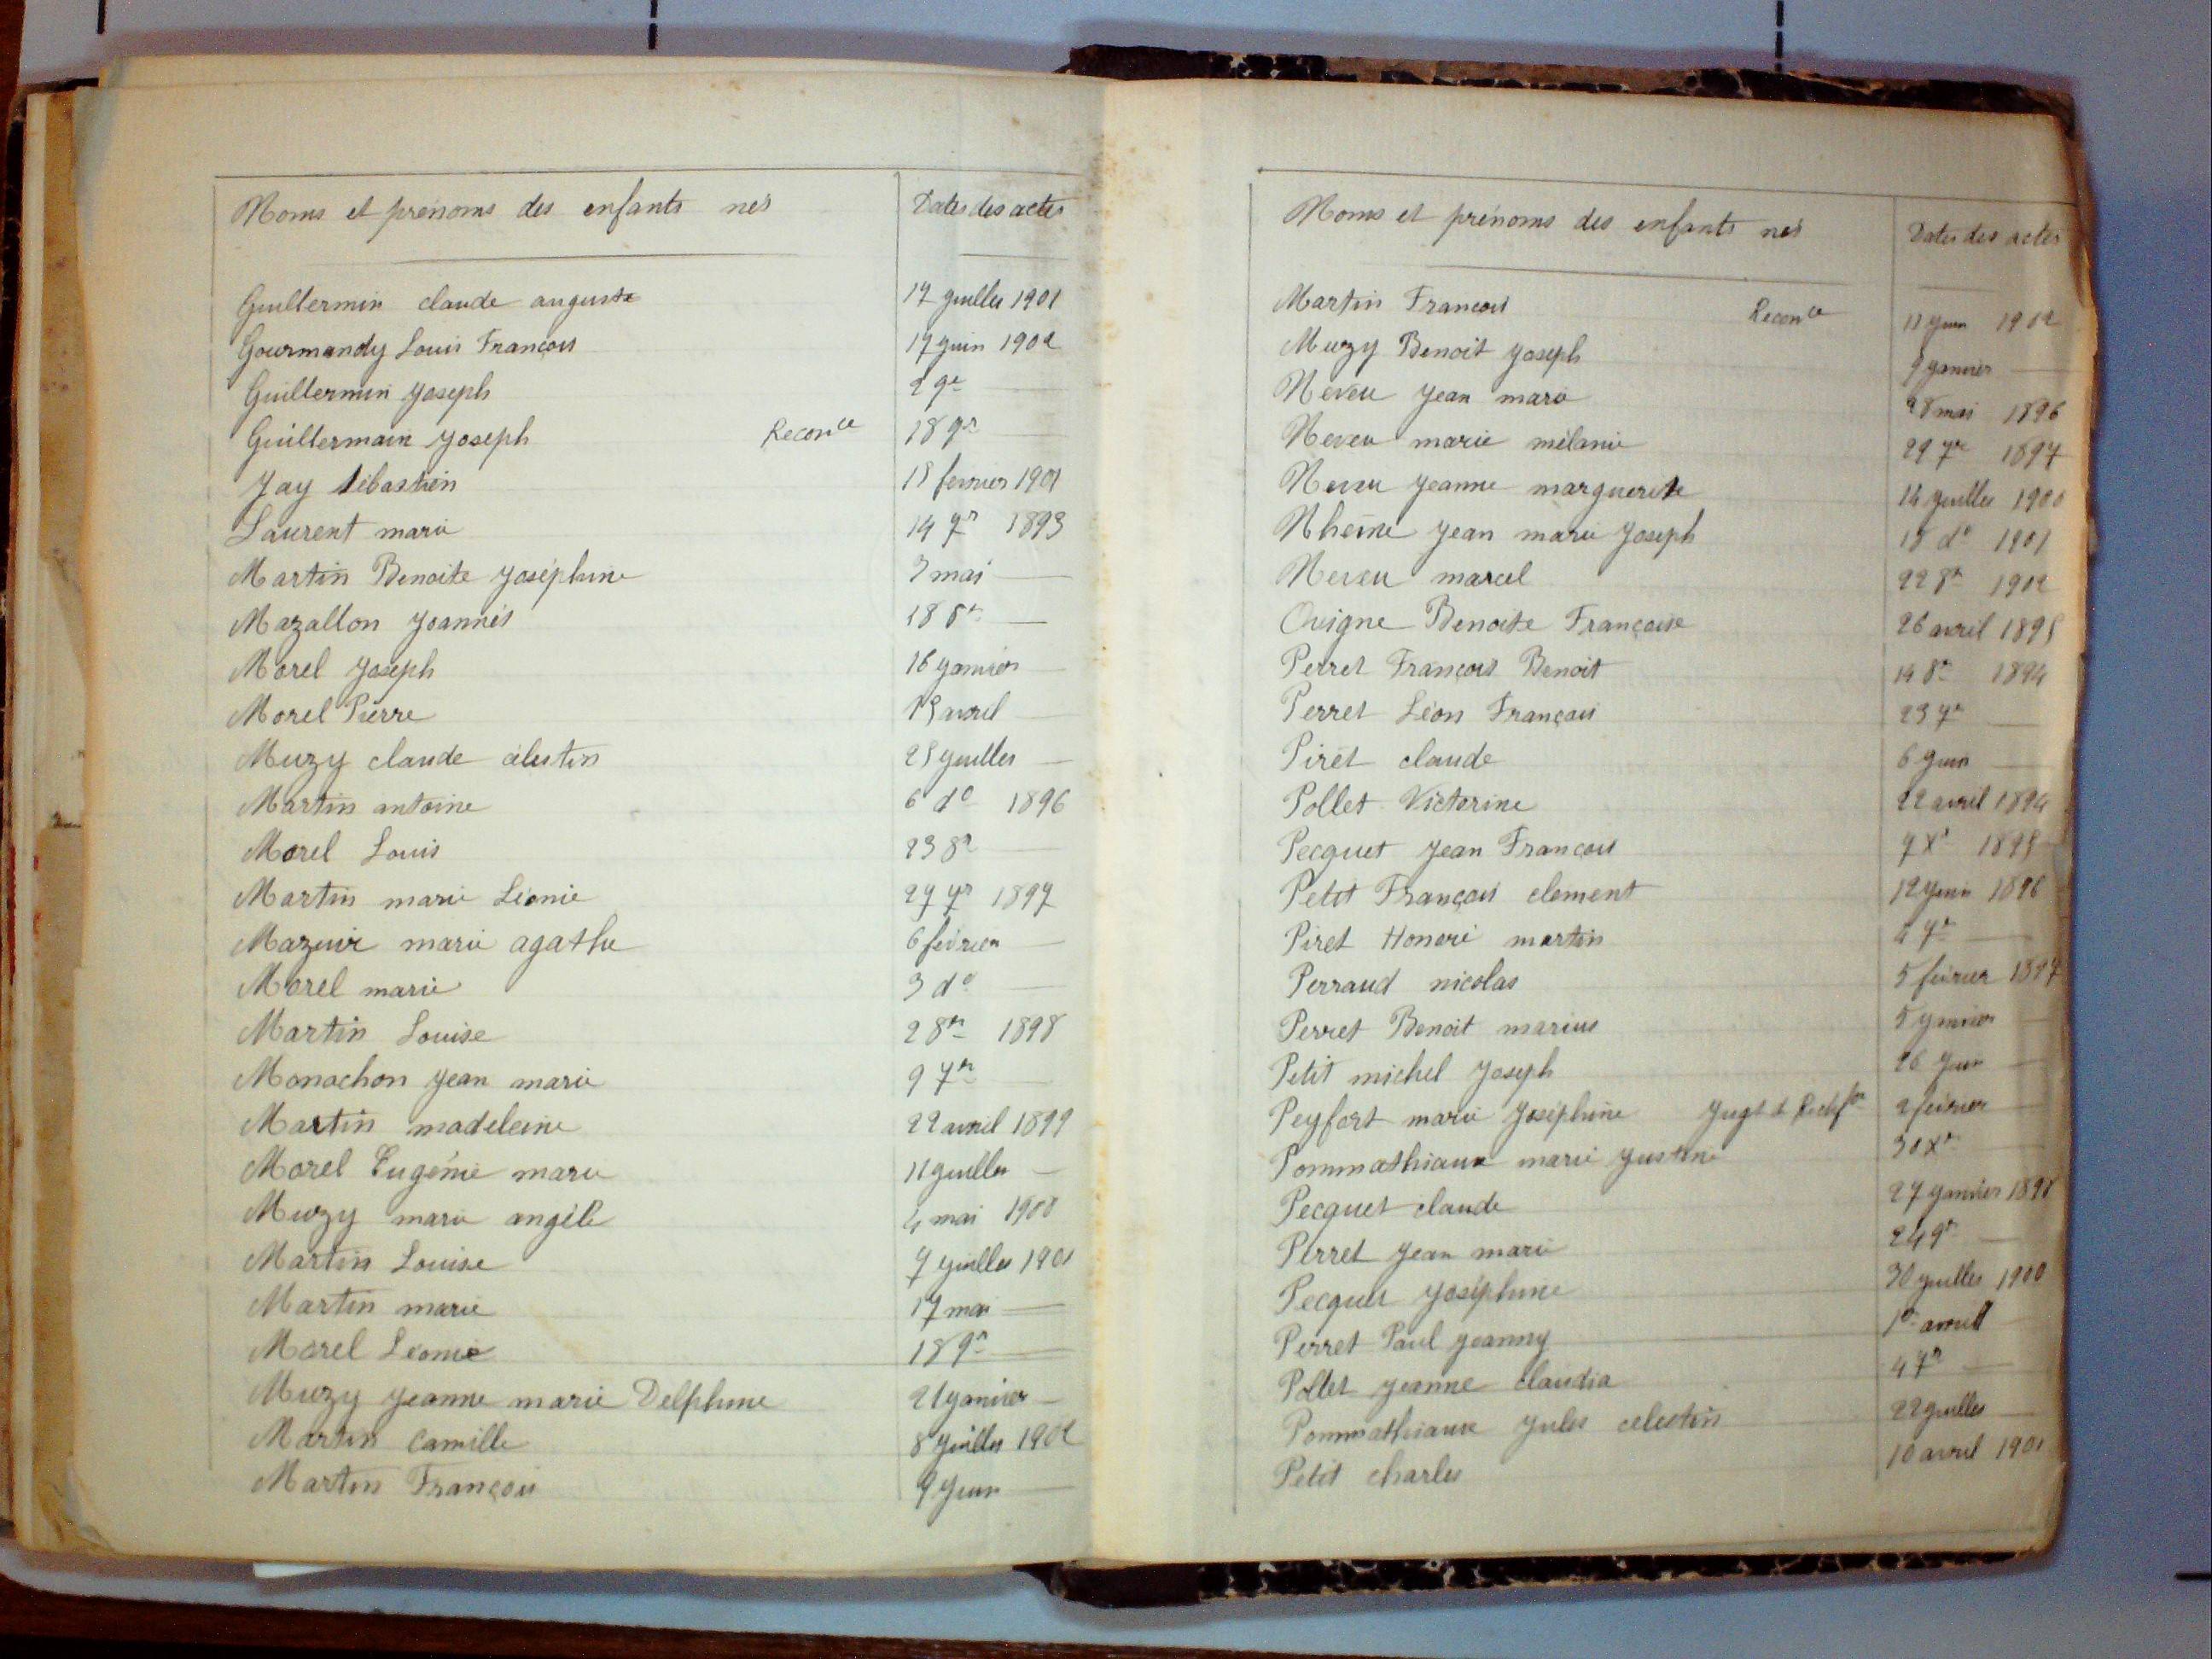 Noms et prénoms des enfants nés Dates des actes
Guillermin claude auguste 17 juillet 1901
Gourmandy Louis François 17 juin 1902
Guillermin Joseph 2 9e —
Guillermain Joseph Reconce 18 9r —
Jay Sébastien 18 février 1901
Laurent marie 14 7r 1893
Martin Benoite Joséphine 3 mai —
Mazallon Joannès 18 8r —
Morel Joseph 16 janvier —
Morel Pierre 13 avril —
Muzy claude célestin 25 juillet —
Martin antoine 6 do 1896
Morel Louis 23 8r —
Martin marie Léonie 27 7r 1897
Mazuir marie agathe 6 février —
Morel marie 3 do —
Martin Louise 2 8r 1898
Monachon jean marie 9 7r —
Martin madeleine 22 avril 1899
Morel Eugénie marie 11 juillet —
Muzy marie angèle 4 mai 1900
Martin Louise 7 juillet 1901
Martin marie 17 mai —
Morel Léonie 18 9r —
Muzy jeanne marie Delphine 21 janvier —
Martin Camille 8 juillet 1902
Martin François 9 juin —
Noms et prénoms des enfants nés Dates des actes
Martin François Reconce 11 juin 1902
Muzy Benoit Joseph 9 janvier —
Neveu Jean marie 28 mai 1896
Neveu marie mélanie 22 7r 1897
Neveu Jeanne marguerite 14 juillet 1900
Nhème jean marie Joseph 18 do 1901
Neveu marcel 22 8r 1902
Ovigne Benoite Françoise 26 avril 1895
Perret François Benoit 14 8r 1894
Perret Léon François 23 7r —
Piret claude 6 juin —
Pollet Victorine 22 avril 1894
Pecquet Jean François 7 Xr 1895
Petit François clement 12 juin 1896
Piret Honoré martin 4 7r —
Perraud nicolas 5 février 1897
Perret Benoit marius 5 janvier —
Petit michel Joseph 26 juin —
Peyfort marie Joséphine Jugt de Rectifon 2 février —
Pommathiaux marie Justine 30 Xr —
Pecquet claude 27 janvier 1898
Perret Jean marie 24 9r —
Pecquet Joséphine 30 juillet 1900
Perret Paul Joanny 1er avril —
Pollet Jeanne Claudia 4 7r —
Pommathiaux Jules célestin 22 juillet —
Petit charles 10 avril 1901